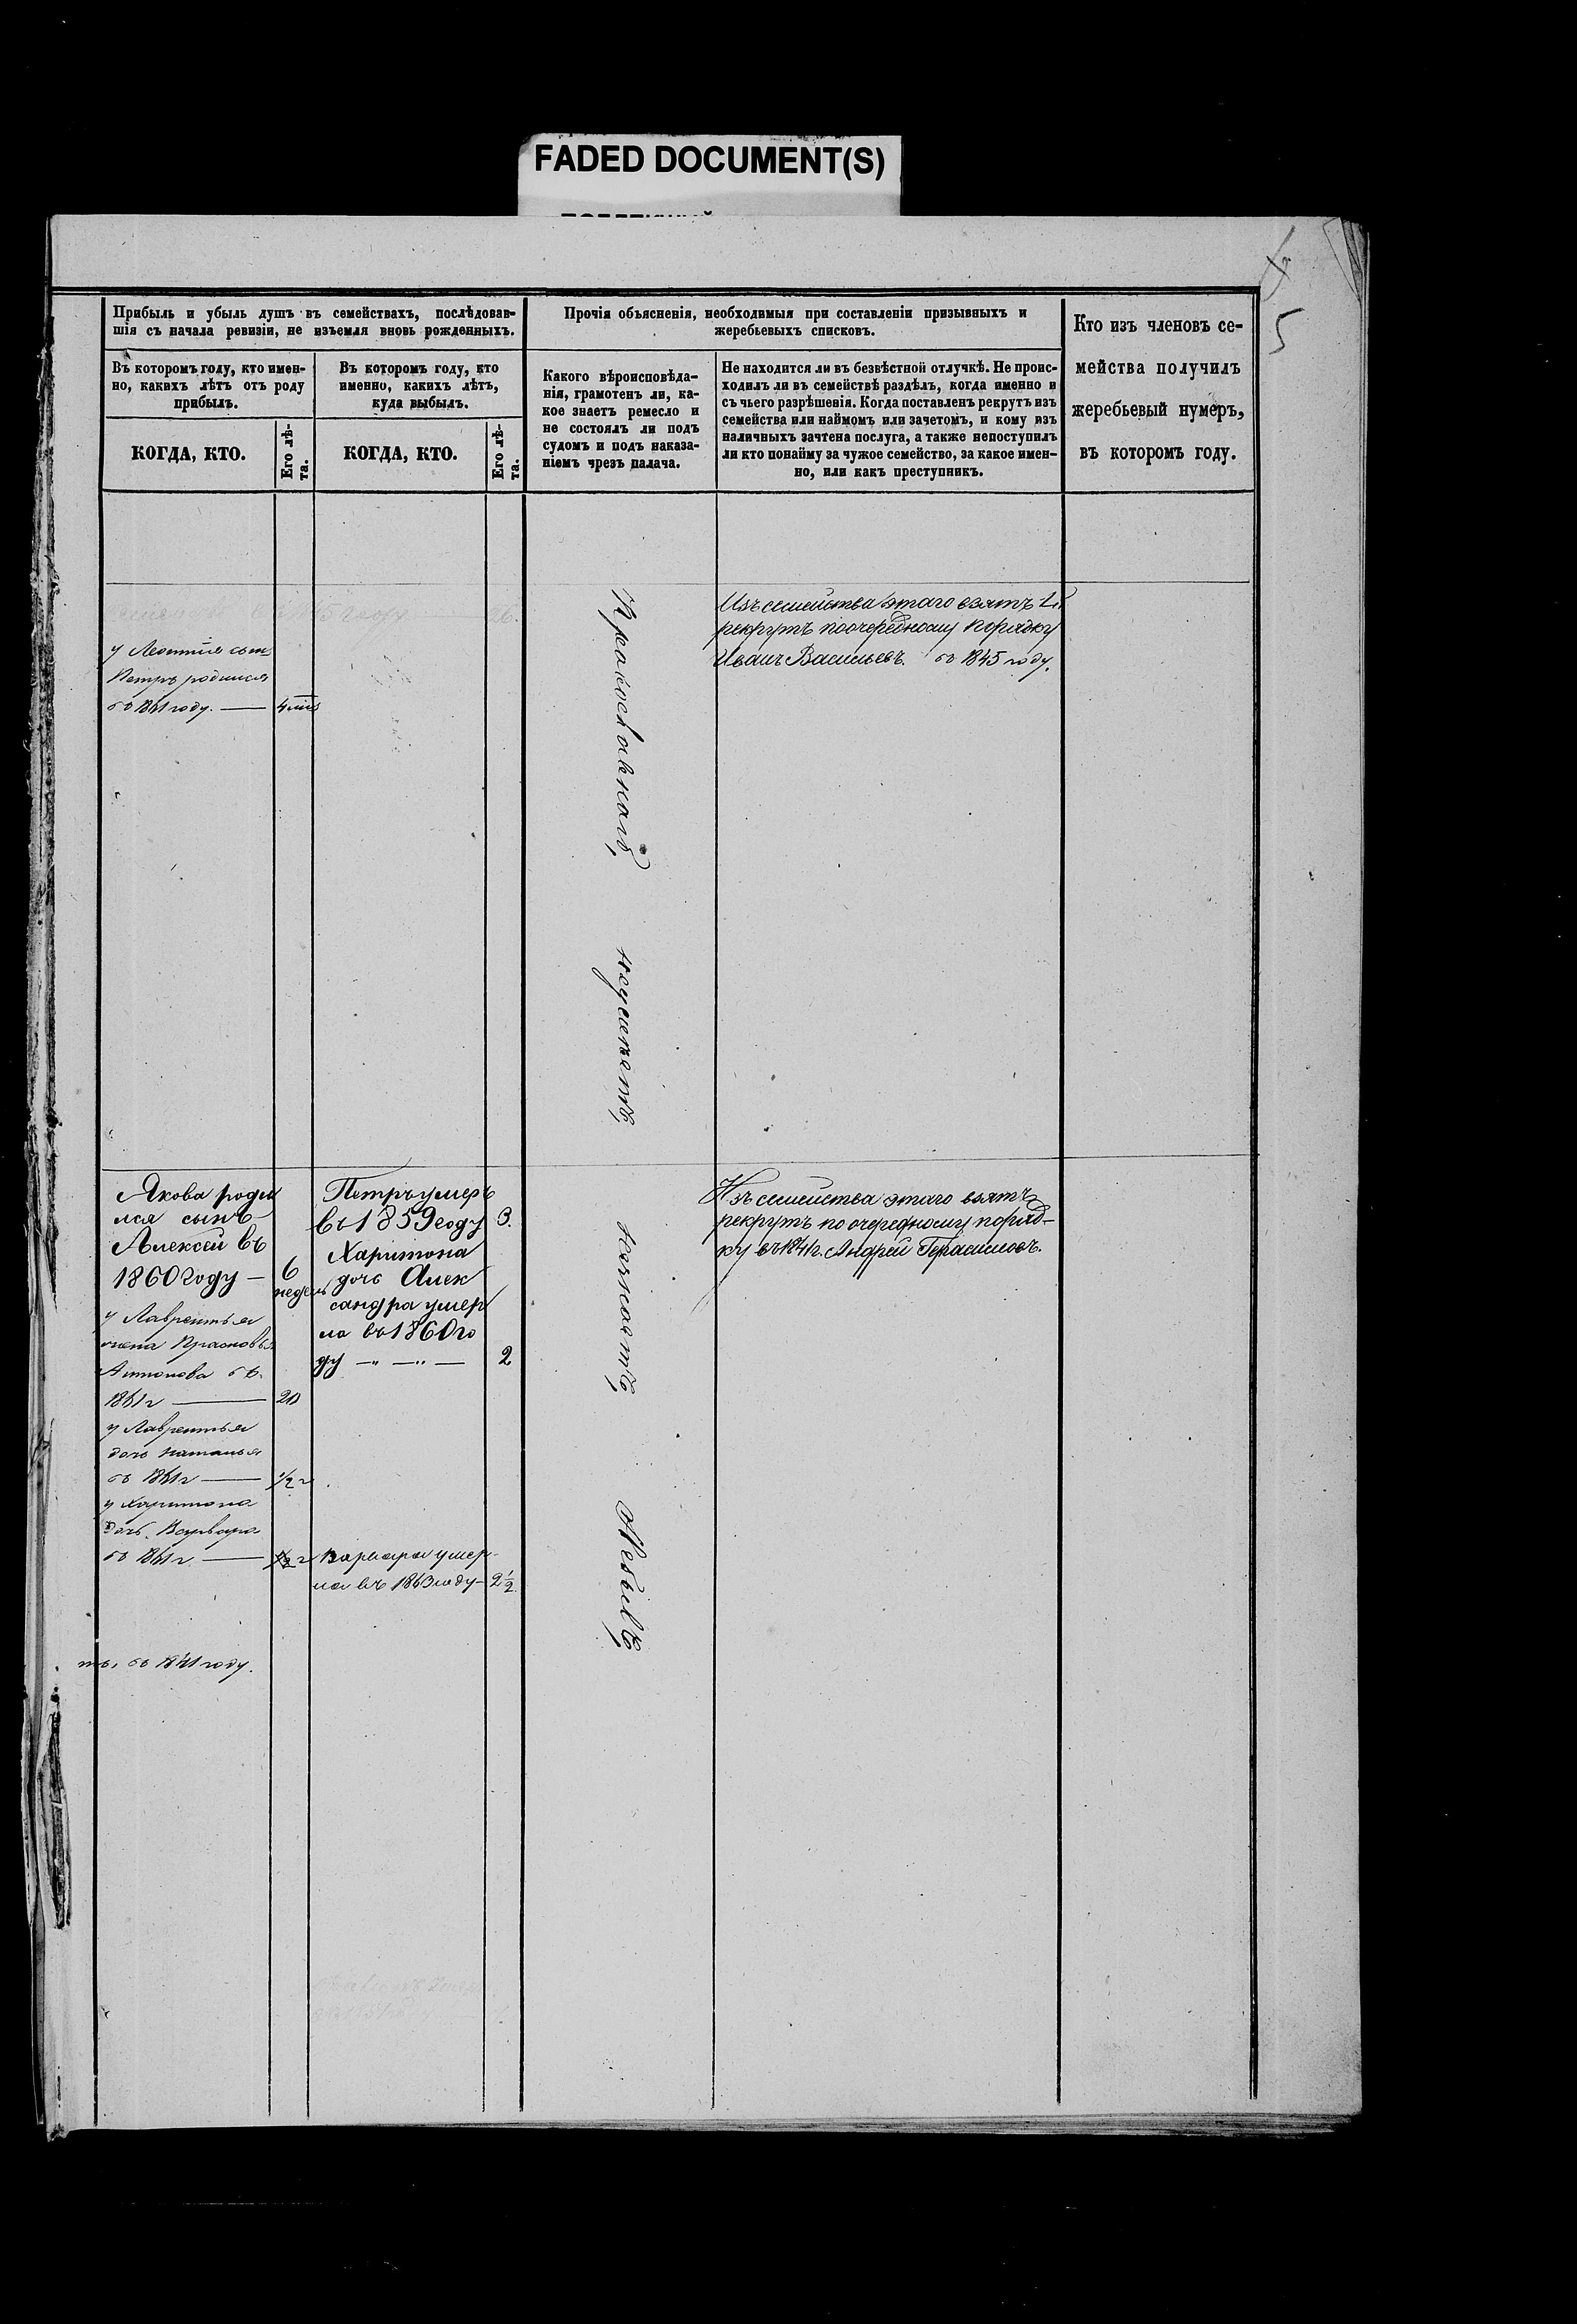 FADED DOCUMENT(S)
5
Прибыль и убыль душъ въ семействахъ, послѣдовав-
шія съ начала ревизіи, не изъемля вновь рожденныхъ.
Въ которомъ году, кто имен-
но, какихъ лѣтъ отъ роду
прибылъ.
КОГДА, КТО.
Его лѣ-
та.
Въ которомъ году, кто
именно, какихъ лѣтъ,
куда выбылъ.
КОГДА, КТО.
Его лѣ-
та.
Прочія объясненія, необходимыя при составленіи призывныхъ и
жеребьевыхъ списковъ.
Какого вѣроисповѣда-
нія, грамотенъ ли, ка-
кое знаетъ ремесло и
не состоялъ ли подъ
судомъ и подъ наказа-
ніемъ чрезъ палача.
Не находится ли въ безвѣстной отлучкѣ. Не проис-
ходилъ ли въ семействѣ раздѣлъ, когда именно и
съ чьего разрѣшенія. Когда поставленъ рекрутъ изъ
семейства или наймомъ или зачетомъ, и кому изъ
наличныхъ зачтена послуга, а также непоступилъ
ли кто понайму за чужое семейство, за какое имен-
но, или какъ преступникъ.
Кто изъ членовъ се-
мейства получилъ
жеребьевый нумеръ,
въ которомъ году.
у Леонтия сын
Петръ родился
въ 1861 году. —
Православнаго
неумеетъ
незнаетъ
Небылъ
Изъ семейства этаго взятъ
рекрутъ поочередному порядку
Иванъ Васильевъ. въ 1845 году.
Якова роди
лся сынъ
Алексей въ
1860 году — 6
недель
у Лаврентья
жена Прасковья
Антонова въ
1861 г — 20
у Лаврентья
дочь Наталья
въ 1861 г — 1/2 г
у Харитона
дочь Варвара
въ 1861 г — 1/2 г
въ 1841 году.
Петръ умеръ
въ 1859 году 3.
Харитона
дочь Алек
сандра умер
ла въ 1860 го
ду — " — " — 2
Варвара умер-
ла въ 1863 году — 2 1/2
Изъ семейства этаго взятъ
рекрутъ по очередному поряд-
ку въ 1841 г. Андрей Герасимовъ.